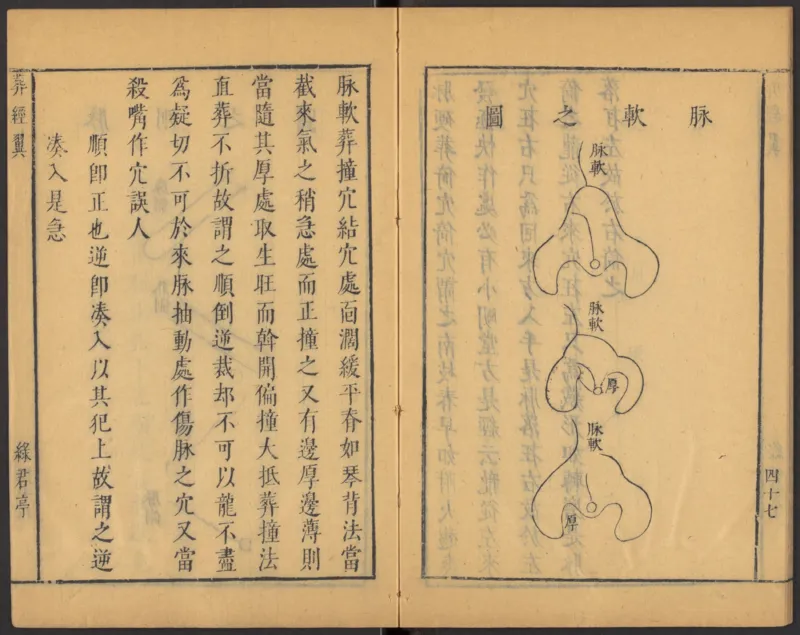 脉軟之圖
脉軟
脉軟
厚
脉軟
厚
四十七
脉軟葬撞穴結穴處靣濶緩平脊如琴背法當
截來氣之稍急處而正撞之又有邊厚邊薄則
當隨其厚處取生旺而斡開偏撞大抵葬撞法
直葬不折故謂之順倒逆裁却不可以龍不盡
為疑切不可於來脉抽動處作傷脉之穴又當
殺嘴作穴誤人
順卽正也逆卽凑入以其犯上故謂之逆
凑入是急
葬經翼
綠君亭